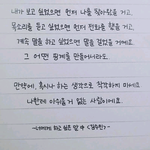 내가 보고 싶었으면 먼저 나를 찾아왔을 거고,
목소리를 듣고 싶었으면 먼저 전화를 했을 거고,
계속 말을 하고 싶었으면 말을 걸었을 거예요.
그 어떤 핑계를 만들어서라도.
만약에, 혹시나 하는 생각으로 착각하지 마세요
나한테 아쉬울 거 없는 사람이에요.
하고 싶은 말 中